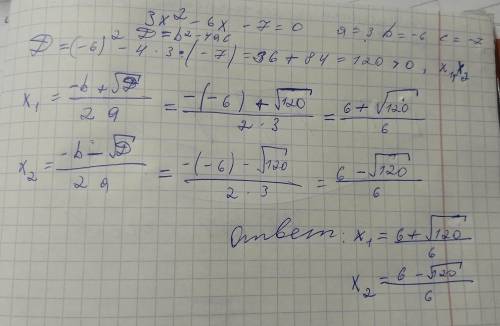 3x² - 6x - 7 = 0   a = 3  b = -6  c = -7
D = b² - 4ac
D = (-6)² - 4 · 3 · (-7) = 36 + 84 = 120 > 0, x₁x₂
x₁ = (-b + √D) / 2a = (-(-6) + √120) / 2·3 = (6 + √120) / 6
x₂ = (-b - √D) / 2a = (-(-6) - √120) / 2·3 = (6 - √120) / 6
Ответ: x₁ = (6 + √120) / 6
x₂ = (6 - √120) / 6